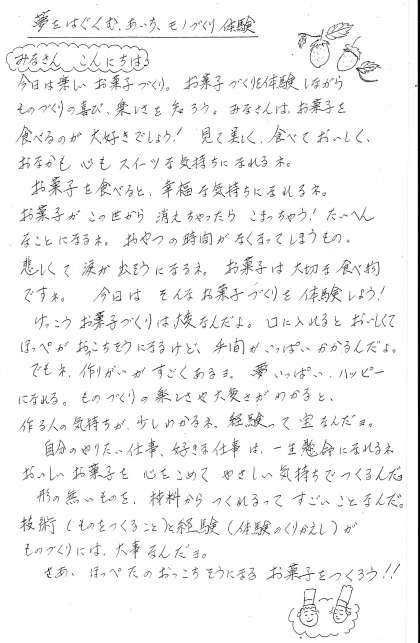 夢をはぐくむ、あいち、モノづくり体験
みなさん こんにちは
今日は楽しいお菓子づくり。お菓子づくりを体験しながら
ものづくりの喜び、楽しさを知ろう。みなさんは、お菓子を
食べるのが大好きでしょう! 見て美しく、食べておいしく、
おなかも心もスイーツな気持ちになれるネ。
お菓子を食べると、幸福な気持ちになれるネ。
お菓子がこの世から消えちゃったらこまっちゃう! たいへん
なことになるネ。おやつの時間がなくなってしまうもの。
悲しくて涙が出そうになるネ。お菓子は大切な食べ物
ですネ。 今日はそんなお菓子づくりを体験しよう!
けっこうお菓子づくりは大変なんだよ。口に入れるとおいしくて
ほっぺがおっこちそうになるけど、手間がいっぱいかかるんだよ。
でもネ、作りがいがすごくあるヨ。夢いっぱい、ハッピー
になれる。ものづくりの楽しさや大変さがわかると、
作る人の気持ちが、少しわかるネ。経験って宝なんだヨ。
自分のやりたい仕事、好きな仕事は、一生懸命になれるネ
おいしいお菓子を心をこめてやさしい気持ちでつくるんだヨ。
形の無いものを、材料からつくれるってすごいことなんだ。
技術(ものをつくること)と経験(体験のくりかえし)が
ものづくりには、大事なんだヨ。
さあ、ほっぺたのおっこちそうになるお菓子をつくろう!!